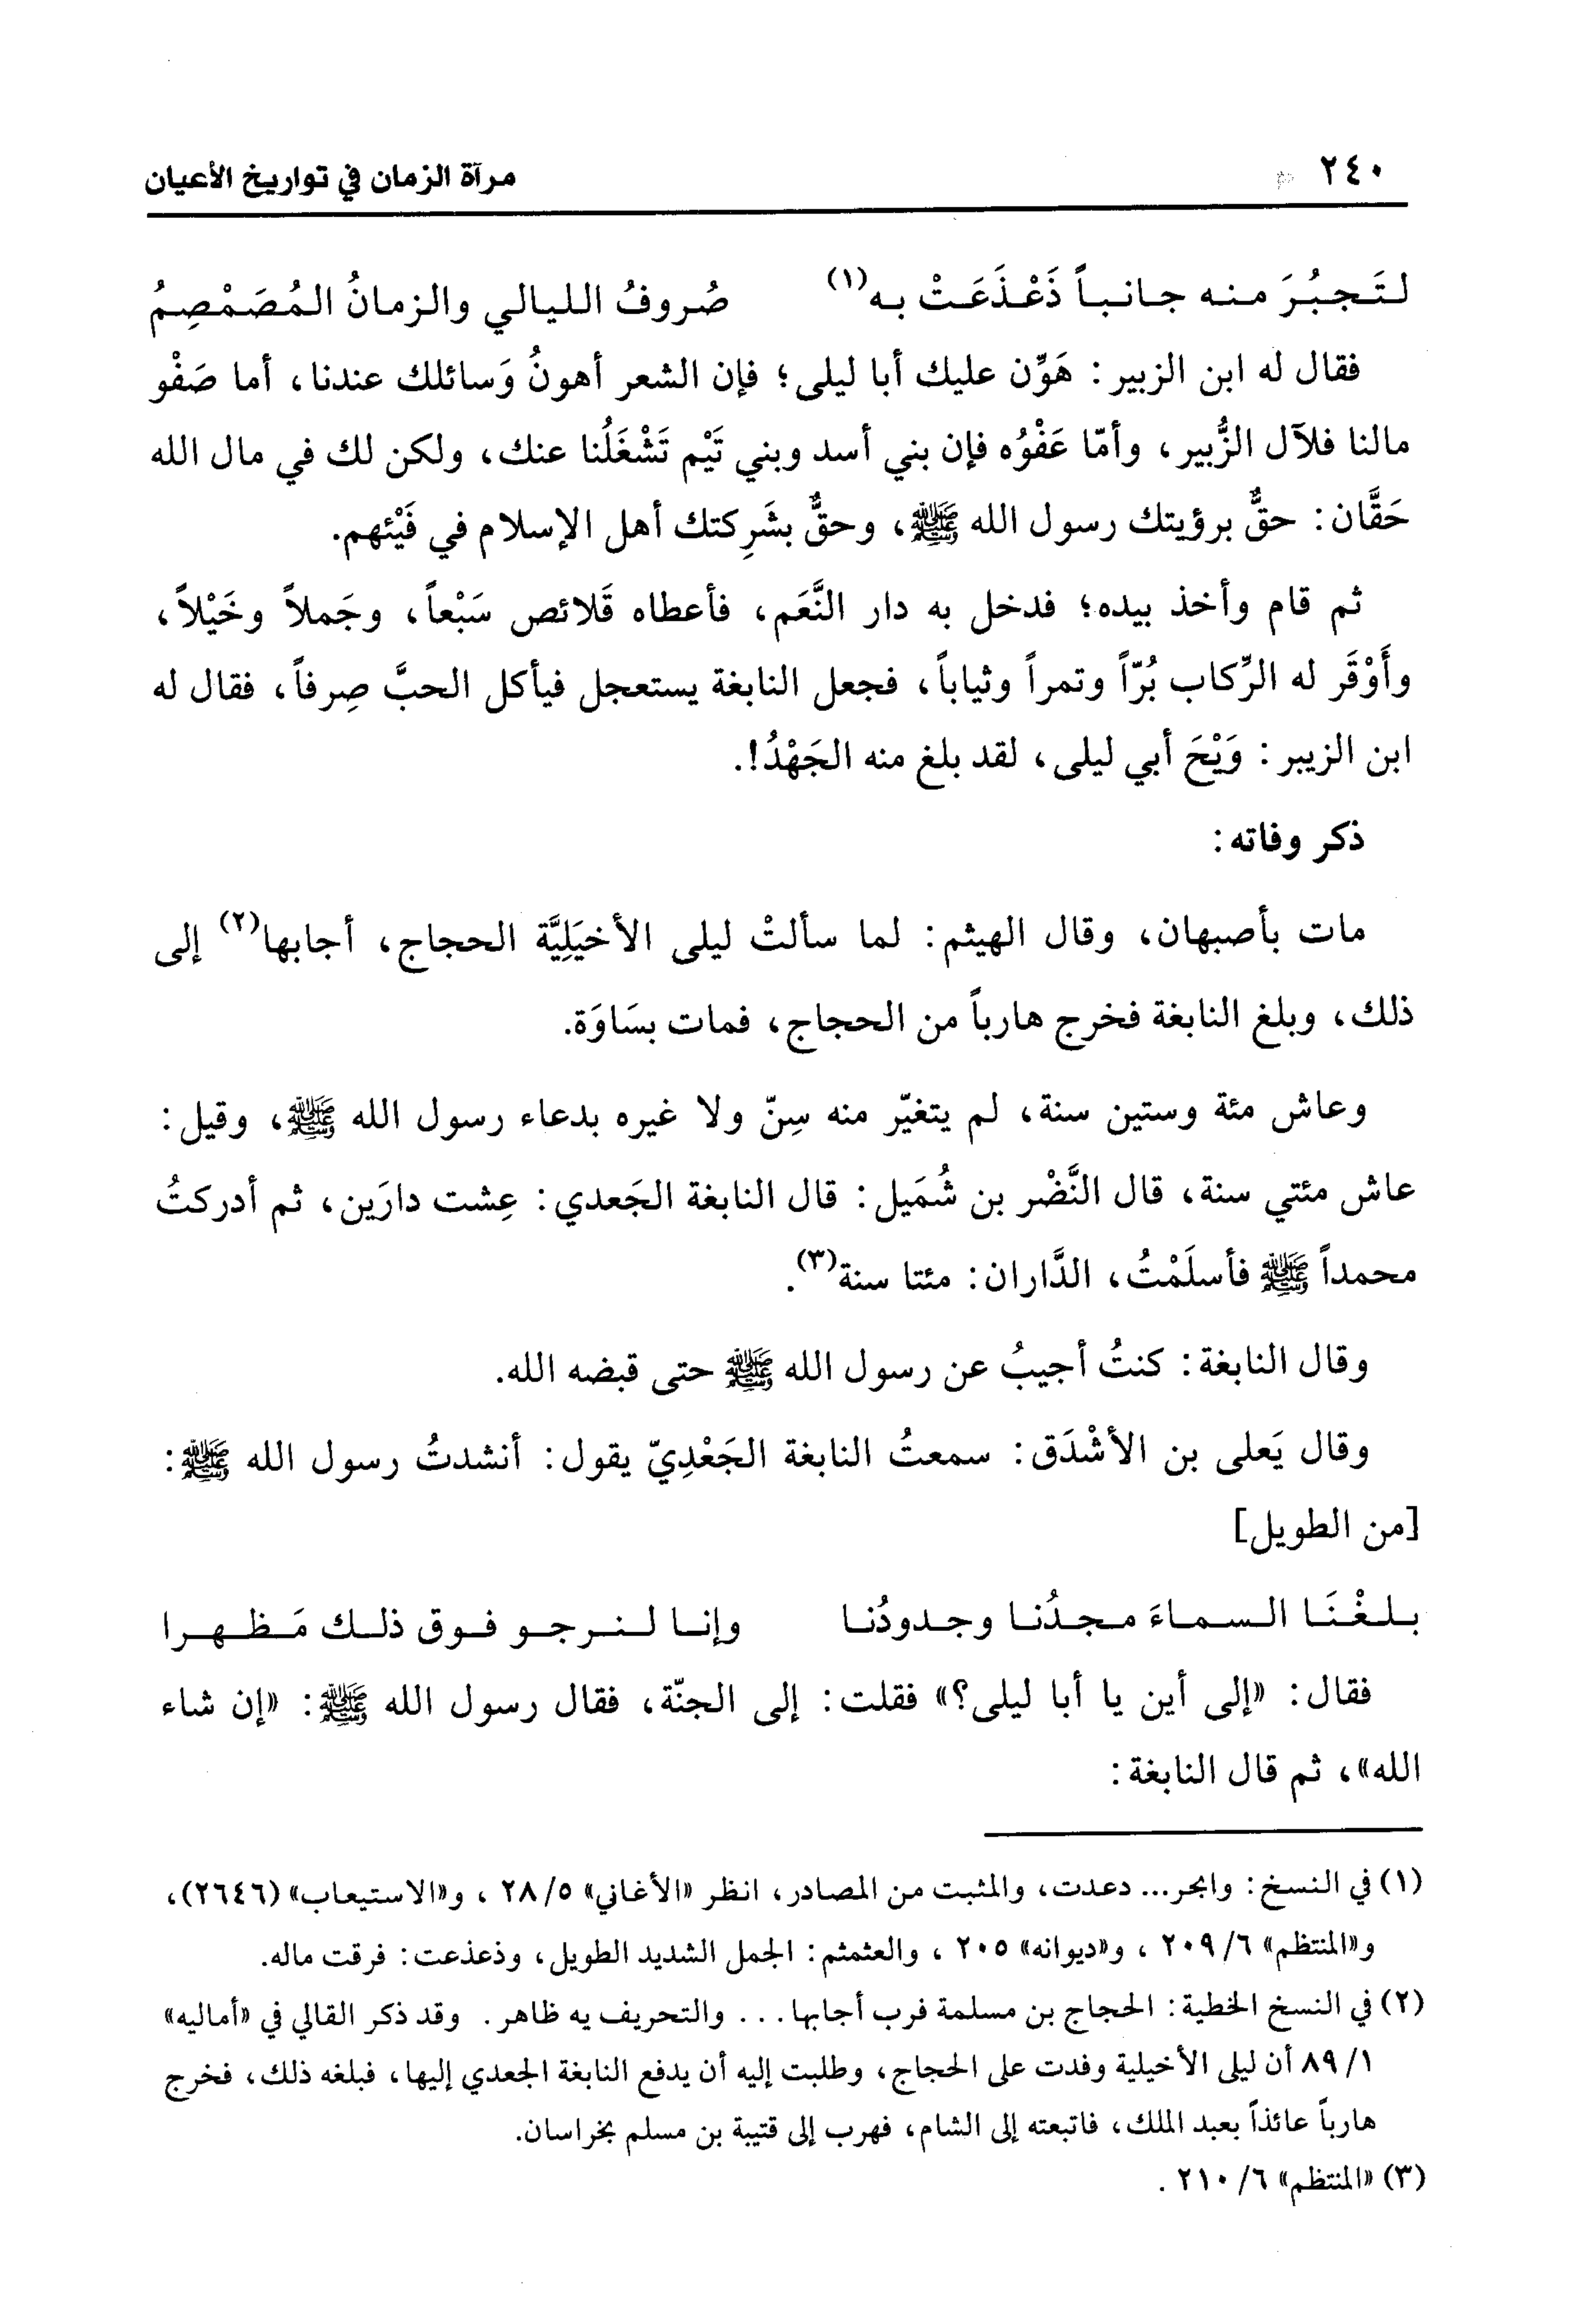 ٢٤٠ مرآة الزمان في تواريخ الأعيان
لتَجبُرَ منه جانباً ذَعْذَعَتْ به(١) صُروفُ الليالي والزمانُ المُصَمْصِمُ
فقال له ابن الزبير: هَوِّن عليك أبا ليلى؛ فإن الشعر أهونُ وَسائلك عندنا، أما صَفْو
مالنا فلآل الزُّبير، وأمّا عَفْوُه فإن بني أسد وبني تَيْم تَشْغَلُنا عنك، ولكن لك في مال الله
حَقَّان: حقٌّ برؤيتك رسول الله ﷺ، وحقٌّ بشَرِكتك أهل الإسلام في فَيْئهم.
ثم قام وأخذ بيده؛ فدخل به دار النَّعَم، فأعطاه قَلائص سَبْعاً، وجَملاً وخَيْلاً،
وأَوْقَر له الرِّكاب بُرّاً وتمراً وثياباً، فجعل النابغة يستعجل فيأكل الحبَّ صِرفاً، فقال له
ابن الزيبر: وَيْحَ أبي ليلى، لقد بلغ منه الجَهْدُ!.
ذكر وفاته:
مات بأصبهان، وقال الهيثم: لما سألتْ ليلى الأخيَلِيَّة الحجاج، أجابها(٢) إلى
ذلك، وبلغ النابغة فخرج هارباً من الحجاج، فمات بسَاوَة.
وعاش مئة وستين سنة، لم يتغيّر منه سِنّ ولا غيره بدعاء رسول الله ﷺ، وقيل:
عاش مئتي سنة، قال النَّضْر بن شُمَيل: قال النابغة الجَعدي: عِشت دارَين، ثم أدركتُ
محمداً ﷺ فأسلَمْتُ، الدَّاران: مئتا سنة(٣).
وقال النابغة: كنتُ أجيبُ عن رسول الله ﷺ حتى قبضه الله.
وقال يَعلى بن الأشْدَق: سمعتُ النابغة الجَعْدِيّ يقول: أنشدتُ رسول الله ﷺ:
[من الطويل]
بلغْنَا السماءَ مجدُنا وجدودُنا وإنا لنرجو فوق ذلك مَظهرا
فقال: «إلى أين يا أبا ليلى؟» فقلت: إلى الجنّة، فقال رسول الله ﷺ: «إن شاء
الله»، ثم قال النابغة:
(١) في النسخ: وابحر... دعدت، والمثبت من المصادر، انظر «الأغاني» ٢٨/٥ ، و«الاستيعاب» (٢٦٤٦)،
و«المنتظم» ٢٠٩/٦ ، و«ديوانه» ٢٠٥ ، والعثمثم: الجمل الشديد الطويل، وذعذعت: فرقت ماله.
(٢) في النسخ الخطية: الحجاج بن مسلمة فرب أجابها... والتحريف يه ظاهر. وقد ذكر القالي في «أماليه»
٨٩/١ أن ليلى الأخيلية وفدت على الحجاج، وطلبت إليه أن يدفع النابغة الجعدي إليها، فبلغه ذلك، فخرج
هارباً عائذاً بعبد الملك، فاتبعته إلى الشام، فهرب إلى قتيبة بن مسلم بخراسان.
(٣) «المنتظم» ٢١٠/٦ .